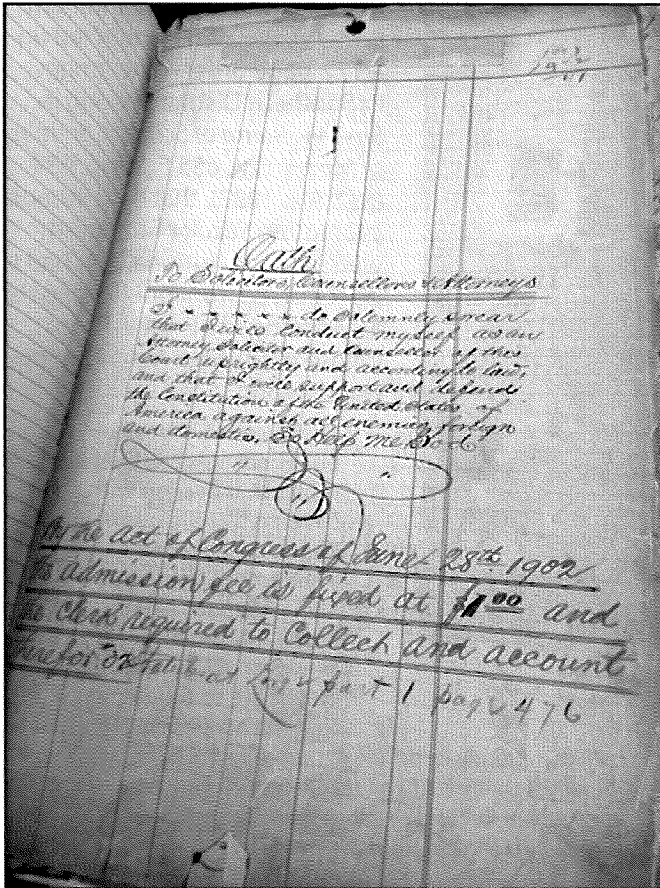 Oath
To Solicitors, Counsellors & Attorneys
I " " " " " do Solemnly swear
that I will Conduct myself as an
Attorney Solicitor and Counsellor of this
Court uprightly and according to law,
and that I will support and defend
the Constitution of the United States of
America against all enemies, foreign
and domestic. So Help Me God
" "
"
By the act of Congress of June 28th 1902
admission fee is fixed at $1.00 and
Clerk required to Collect and account
therefor 32 at Large part 1 page 476